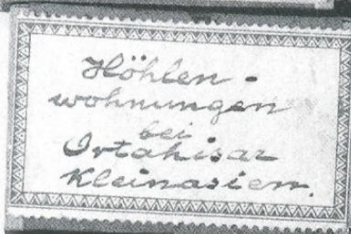 Höhlen-
wohnungen
bei
Ortahisar
Kleinasien.